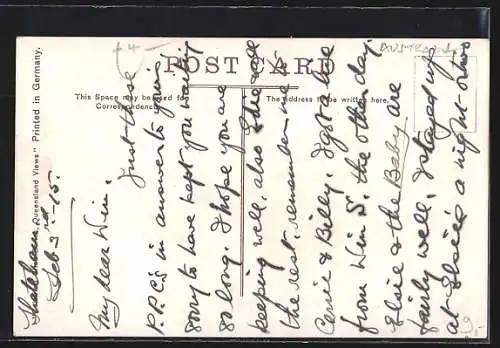 + 4 -
AUSTRALIA
POST CARD
This Space may be used for
Correspondence.
The address to be written here.
"Queensland Views" Printed in Germany.
Feb 3rd -15.
My dear Win.
Just these
P.P.C's in answer to yours
sorry to have kept you waiting
so long. I hope you are
keeping well, also Elsie and
the rest. remember me to
& Billy. I got a line
from Win S. the other day.
Elsie & the Baby are
fairly well, I stayed up
at Elsie's a night or two
9.-